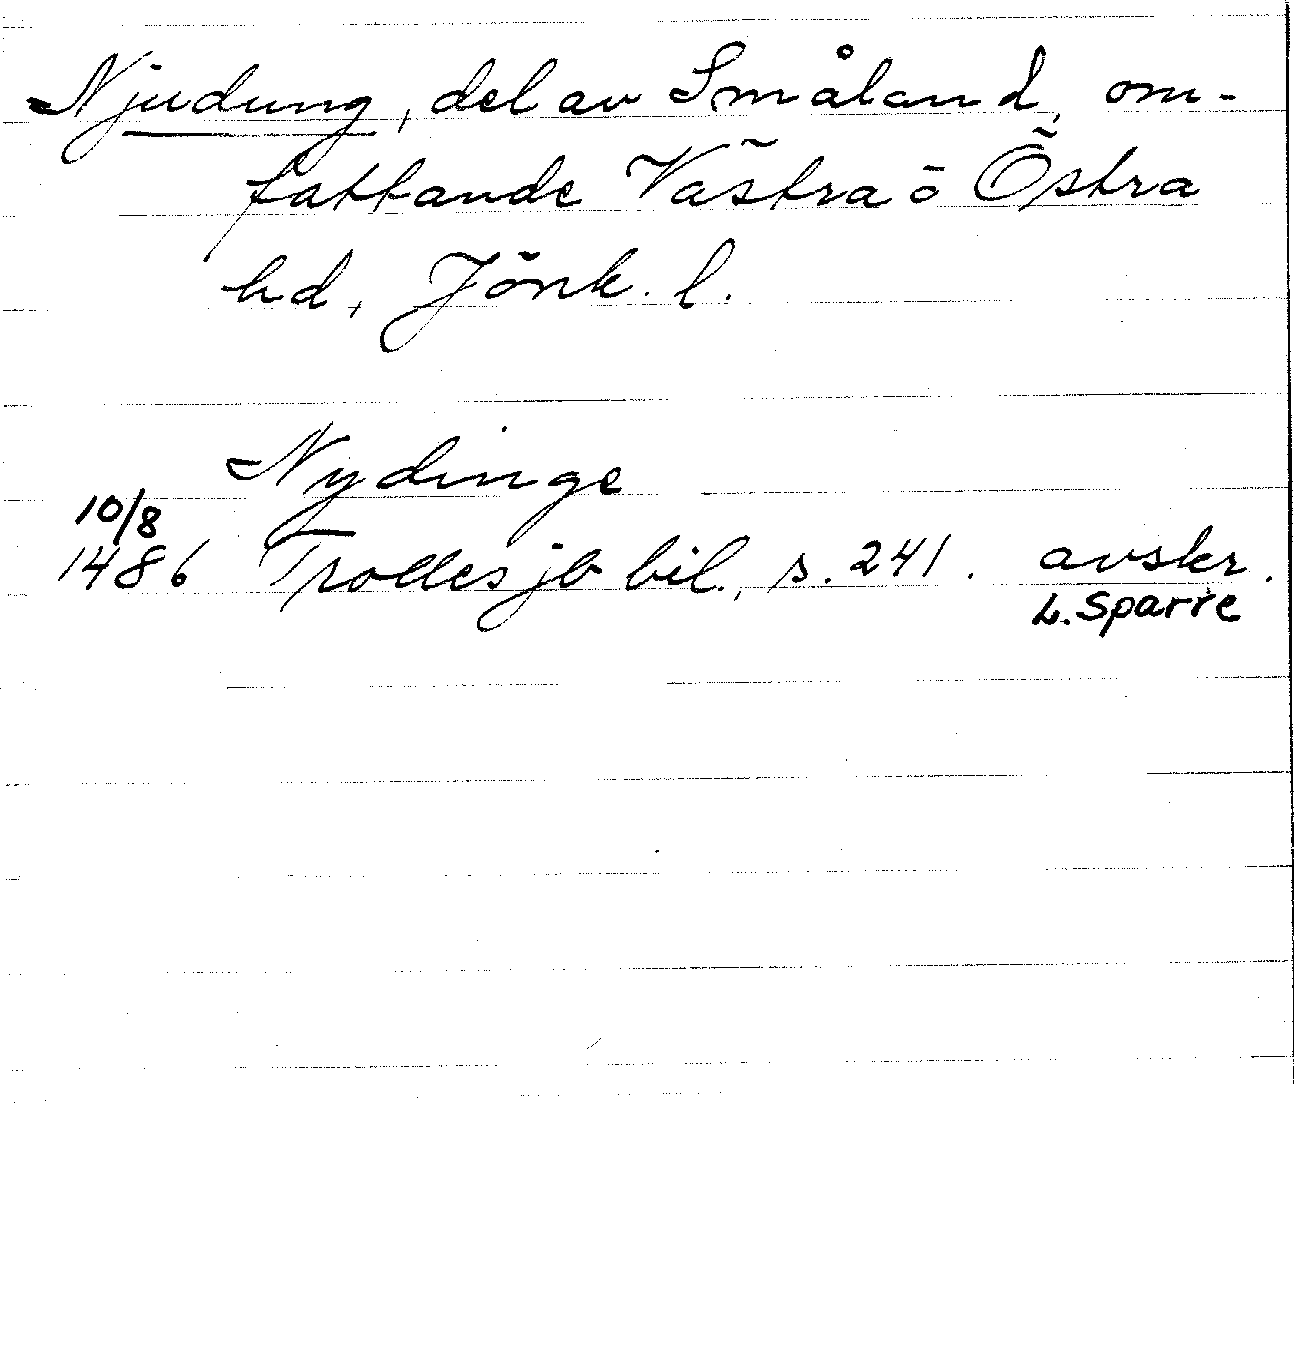 Njudung, del av Småland, om-
fattande Västra o Östra
hd, Jönk. l.
Nydinge
10/8
1486 Trolles jb bil., s. 241. avskr.
L. Sparre